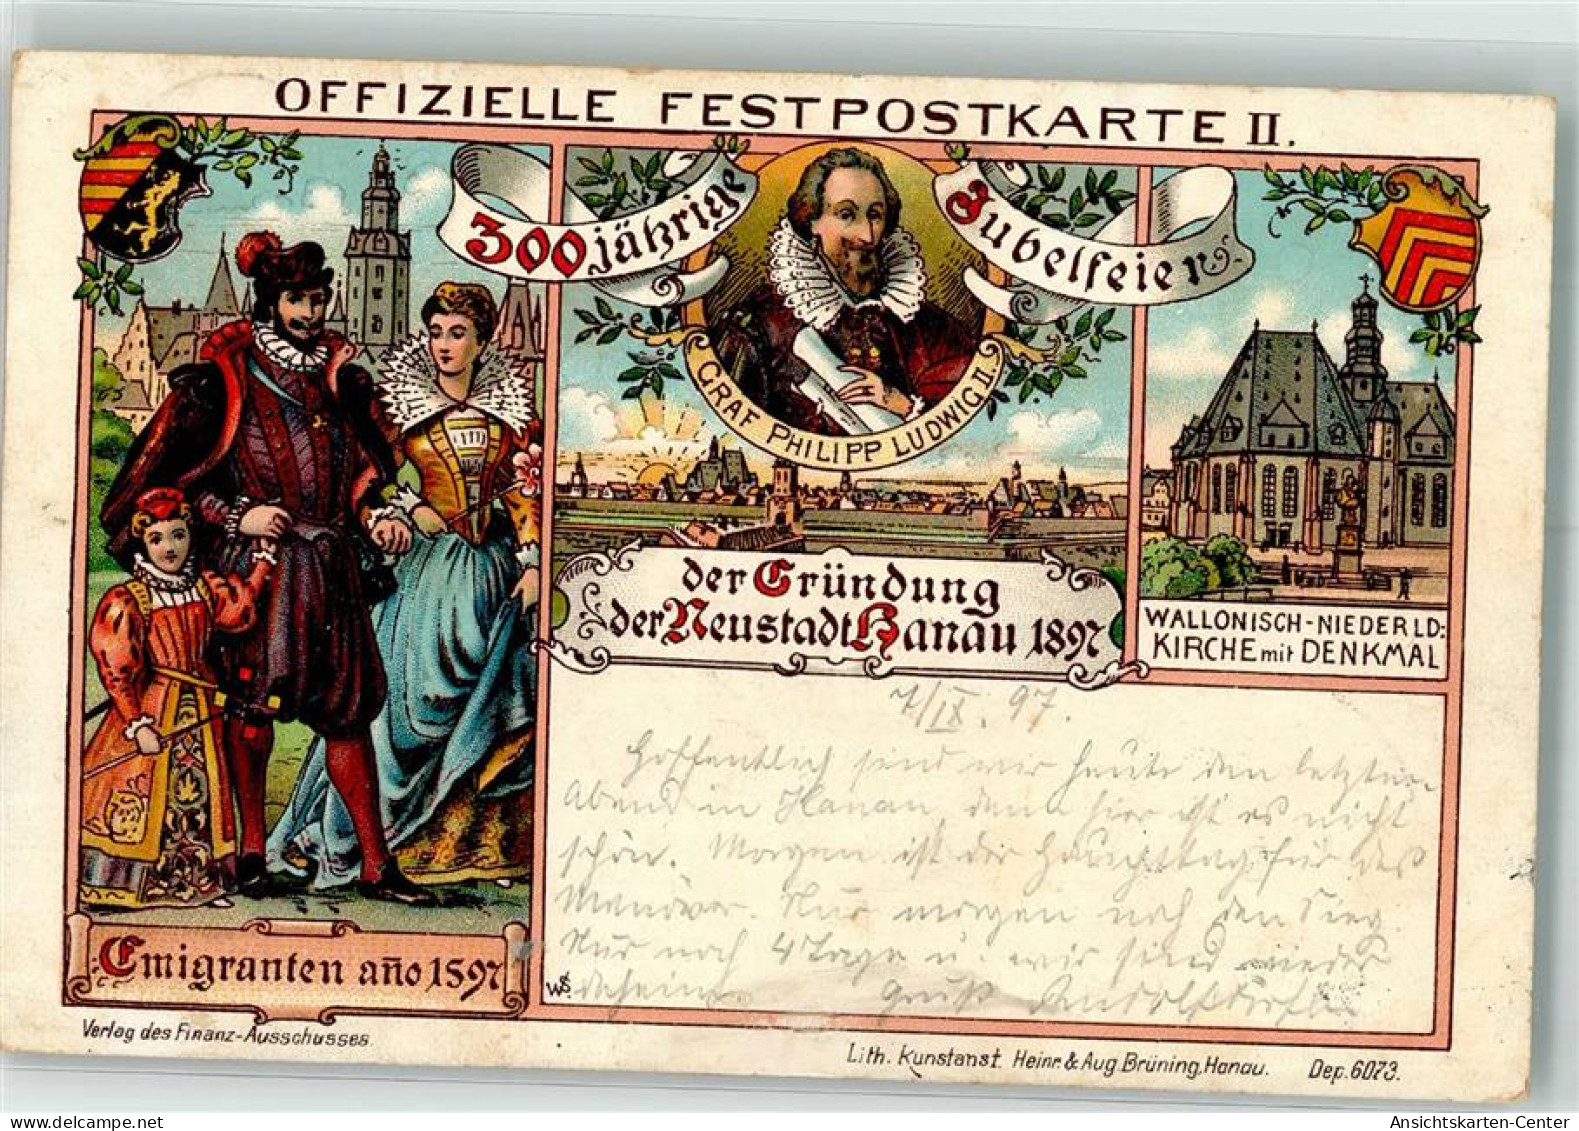 OFFIZIELLE FESTPOSTKARTE II.
300jährige Jubelfeier
GRAF PHILIPP LUDWIG II.
der Gründung
der Neustadt Hanau 1897
WALLONISCH-NIEDERLD:
KIRCHE mit DENKMAL
7/IX. 97.
Hoffentlich sind wir heute den letzten
Abend in Hanau, denn hier ist es nicht
schön. Morgen ist der Haupttag für das
Manöver. Nur morgen noch den Sieg.
Nur noch 4 Tage u. wir sind wieder
daheim. Gruß
Emigranten año 1597
WS.
Verlag des Finanz-Ausschusses
Lith. Kunstanst. Heinr. & Aug. Brüning, Hanau. Dep. 6073.
Ansichtskarten-Center